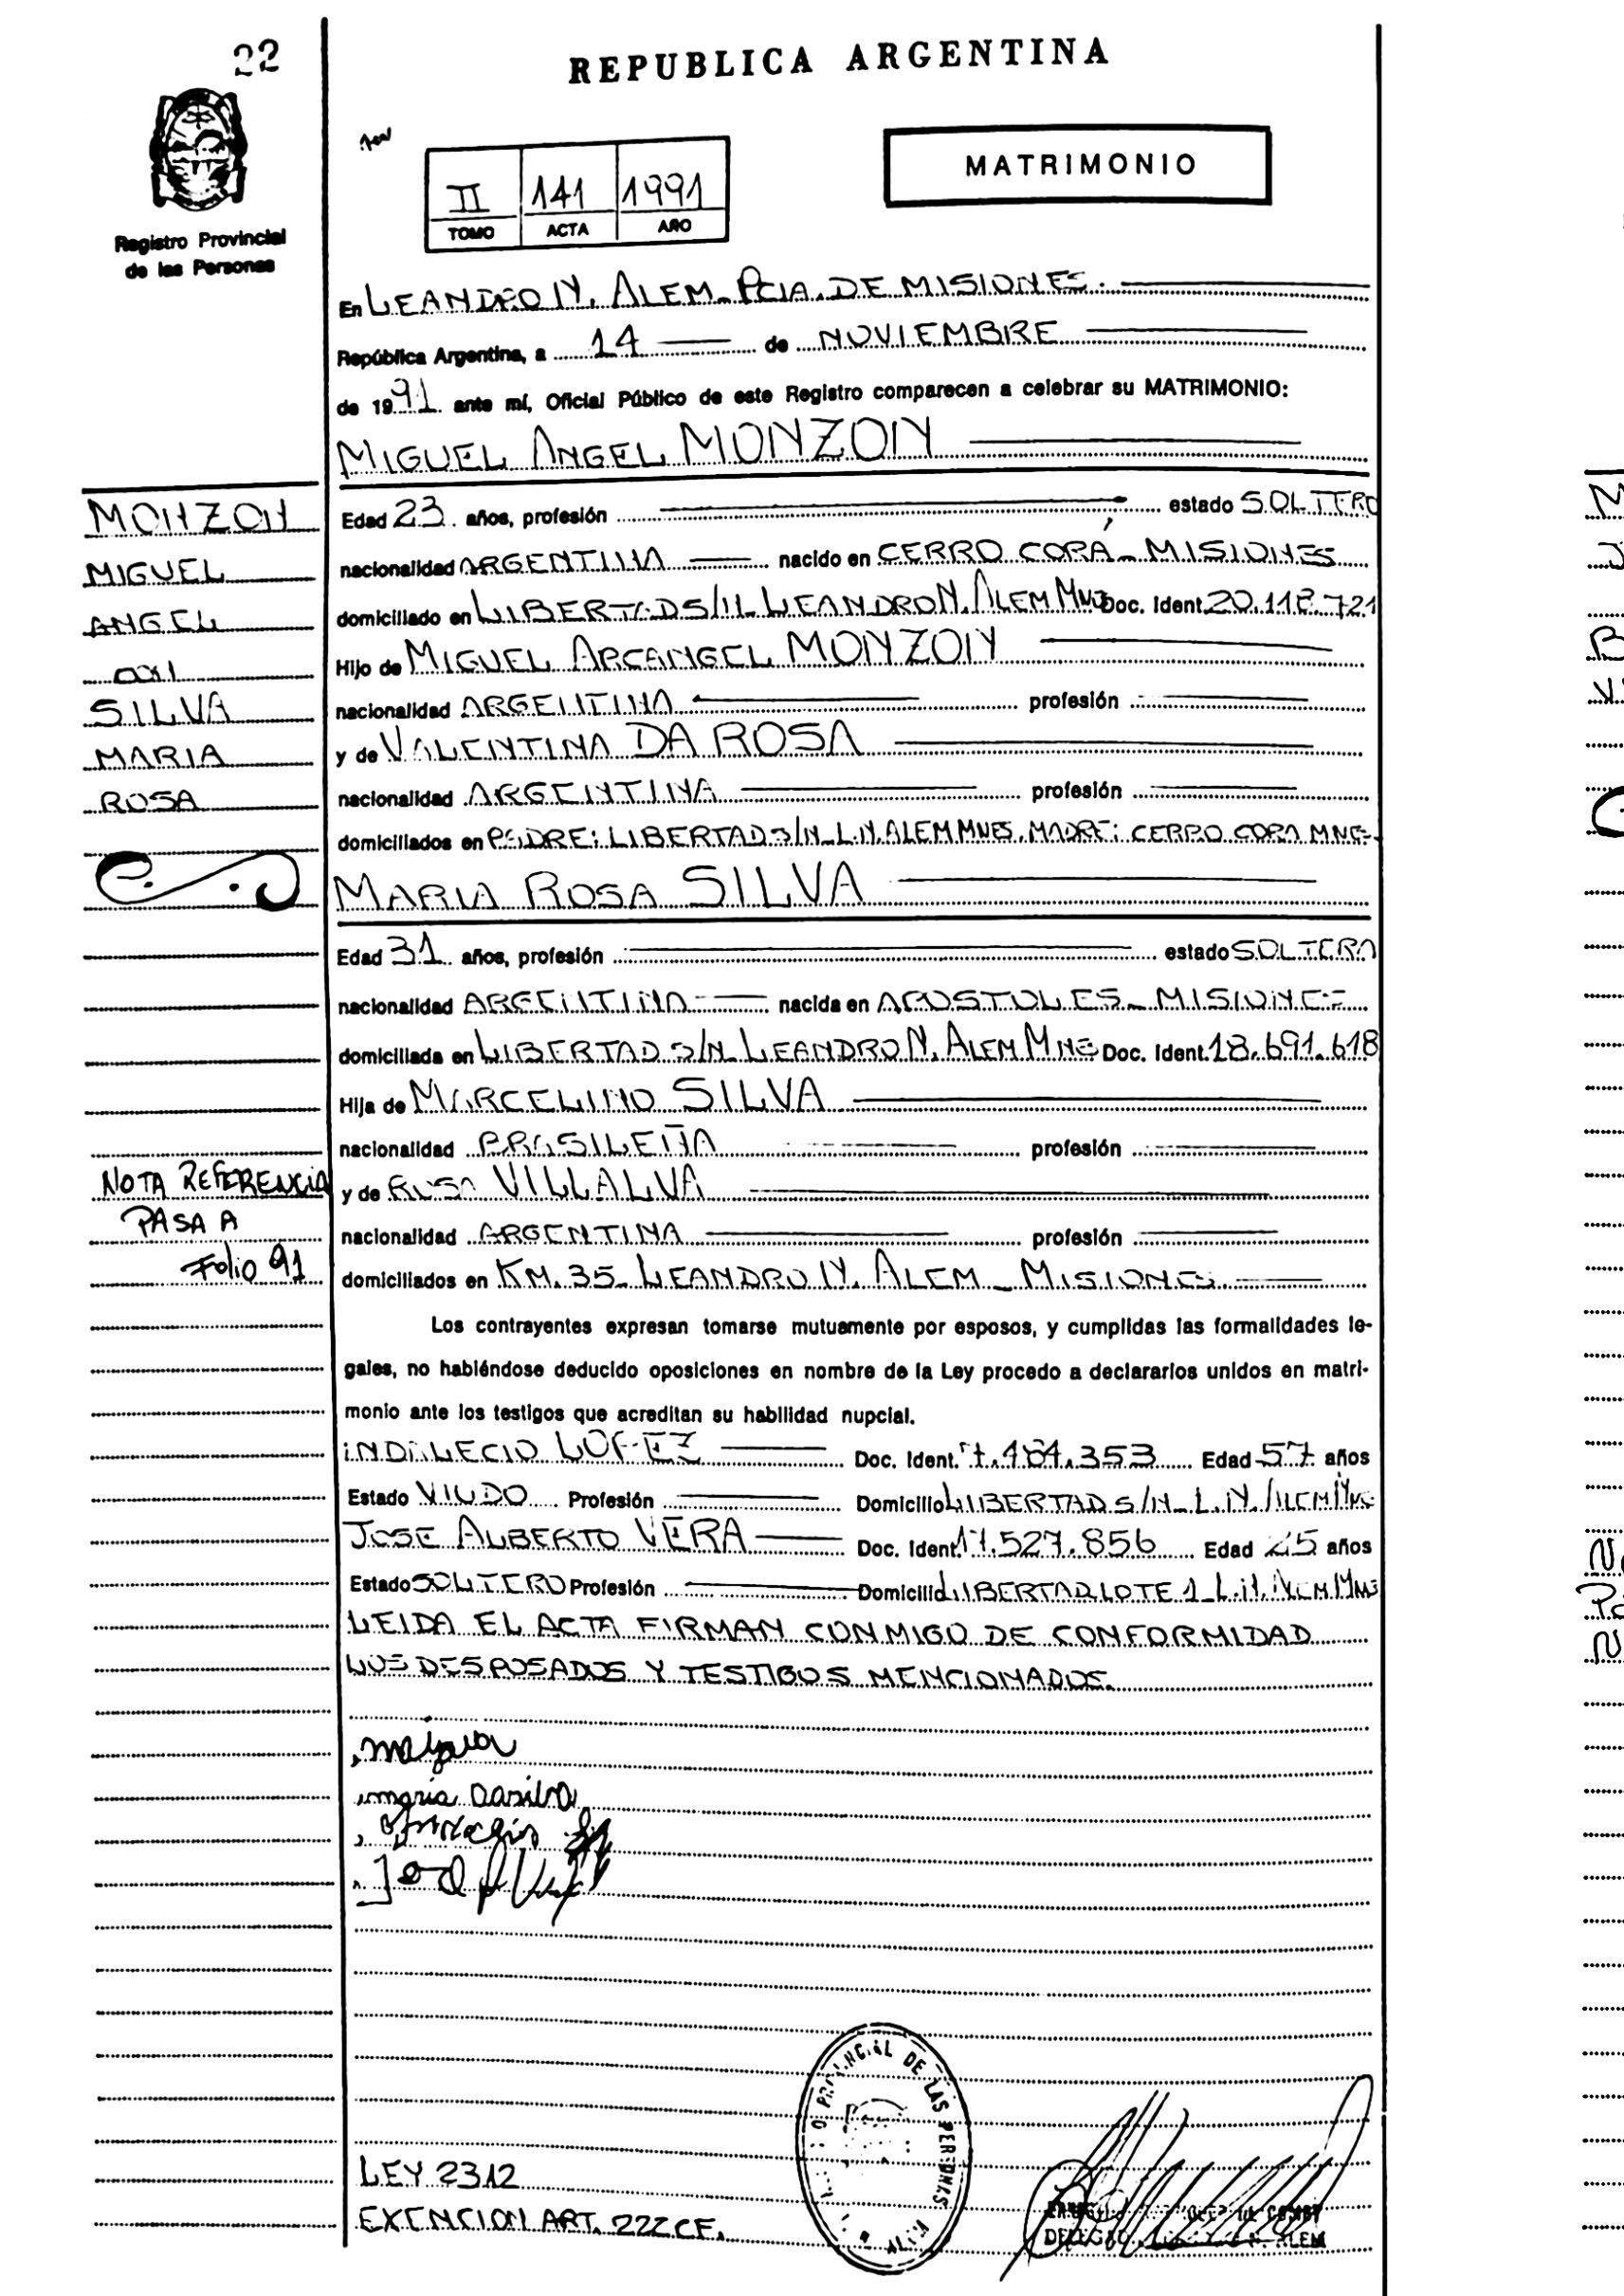 22
REPUBLICA ARGENTINA
MATRIMONIO
II 141 1991
TOMO ACTA AÑO
Registro Provincial
de las Personas
En LEANDRO N. ALEM - PCIA. DE MISIONES.
República Argentina, a 14 de NOVIEMBRE
de 1991 ante mí, Oficial Público de este Registro comparecen a celebrar su MATRIMONIO:
MIGUEL ANGEL MONZON
MONZON
MIGUEL
ANGEL
CON
SILVA
MARIA
ROSA
Edad 23 años, profesión estado SOLTERO
nacionalidad ARGENTINA nacido en CERRO CORÁ - MISIONES
domiciliado en LIBERTAD S/N - LEANDRO N. ALEM MNES Doc. Ident. 20.118.721
Hijo de MIGUEL ARCANGEL MONZON
nacionalidad ARGENTINA profesión
y de VALENTINA DA ROSA
nacionalidad ARGENTINA profesión
domiciliados en PADRE: LIBERTAD S/N - L.N. ALEM MNES. MADRE: CERRO CORA MNES.
MARIA ROSA SILVA
Edad 31 años, profesión estado SOLTERA
nacionalidad ARGENTINA nacida en APOSTOLES - MISIONES
domiciliada en LIBERTAD S/N - LEANDRO N. ALEM MNES Doc. Ident. 18.691.618
Hija de MARCELINO SILVA
nacionalidad BRASILEÑA profesión
y de ROSA VILLALVA
nacionalidad ARGENTINA profesión
domiciliados en KM. 35 - LEANDRO N. ALEM - MISIONES
NOTA REFERENCIA
PASA A
Folio 91
Los contrayentes expresan tomarse mutuamente por esposos, y cumplidas las formalidades le-
gales, no habiéndose deducido oposiciones en nombre de la Ley procedo a declararlos unidos en matri-
monio ante los testigos que acreditan su habilidad nupcial.
INDALECIO LOPEZ Doc. Ident. 7.484.353 Edad 57 años
Estado VIUDO Profesión Domicilio LIBERTAD S/N - L.N. ALEM MNES
JOSE ALBERTO VERA Doc. Ident. 17.527.856 Edad 25 años
Estado SOLTERO Profesión Domicilio LIBERTAD LOTE 1 - L.N. ALEM MNES
LEIDA EL ACTA FIRMAN CONMIGO DE CONFORMIDAD
LOS DESPOSADOS Y TESTIGOS MENCIONADOS.
maria
PROVINCIAL DE LAS PERSONAS
LEY 2312
EXENCION ART. 222 C.F.
ALEM